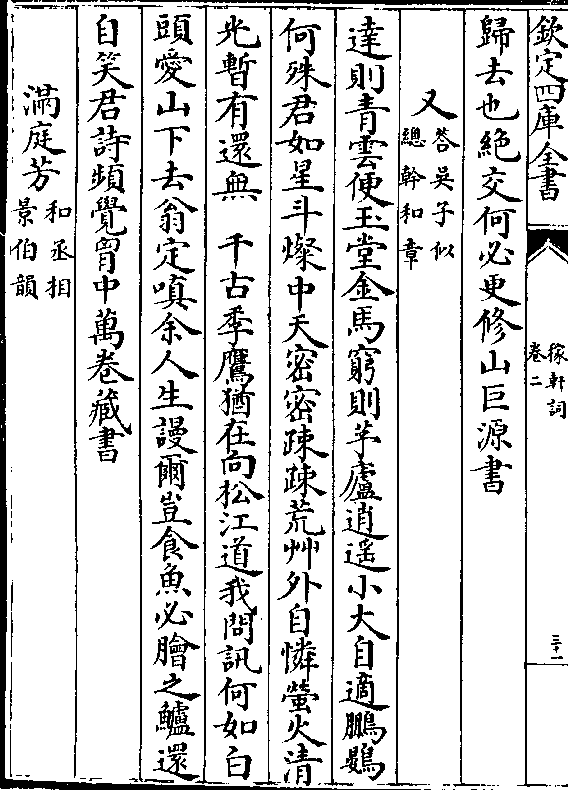 欽定四庫全書
稼軒詞
卷二
三十一
歸去也絶交何必更修山巨源書
又答吳子似
總幹和章
達則青雲便玉堂金馬窮則茅廬逍遥小大自適鵬鷃
何殊君如星斗燦中天密密疎疎荒艸外自憐螢火清
光暫有還無　千古季鷹猶在向松江道我問訊何如白
頭愛山下去翁定嗔余人生謾爾豈食魚必膾之鱸還
自笑君詩頻覺胷中萬卷藏書
滿庭芳和丞相
景伯韻